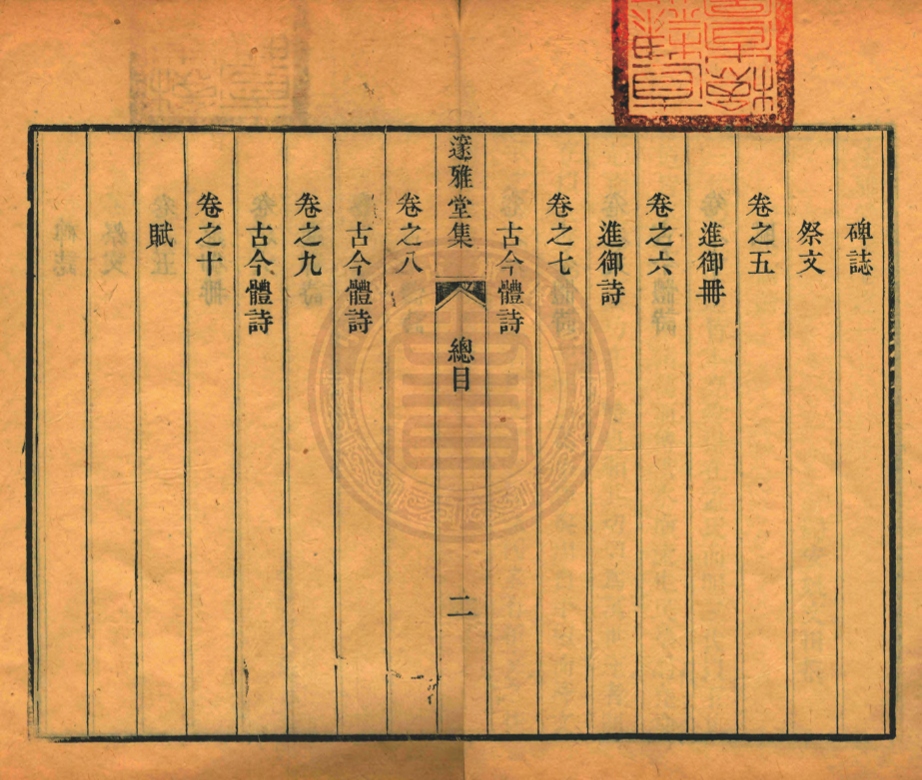 碑誌
祭文
卷之五
進御冊
卷之六
進御詩
卷之七
古今體詩
邃雅堂集
總目
二
卷之八
古今體詩
卷之九
古今體詩
卷之十
賦